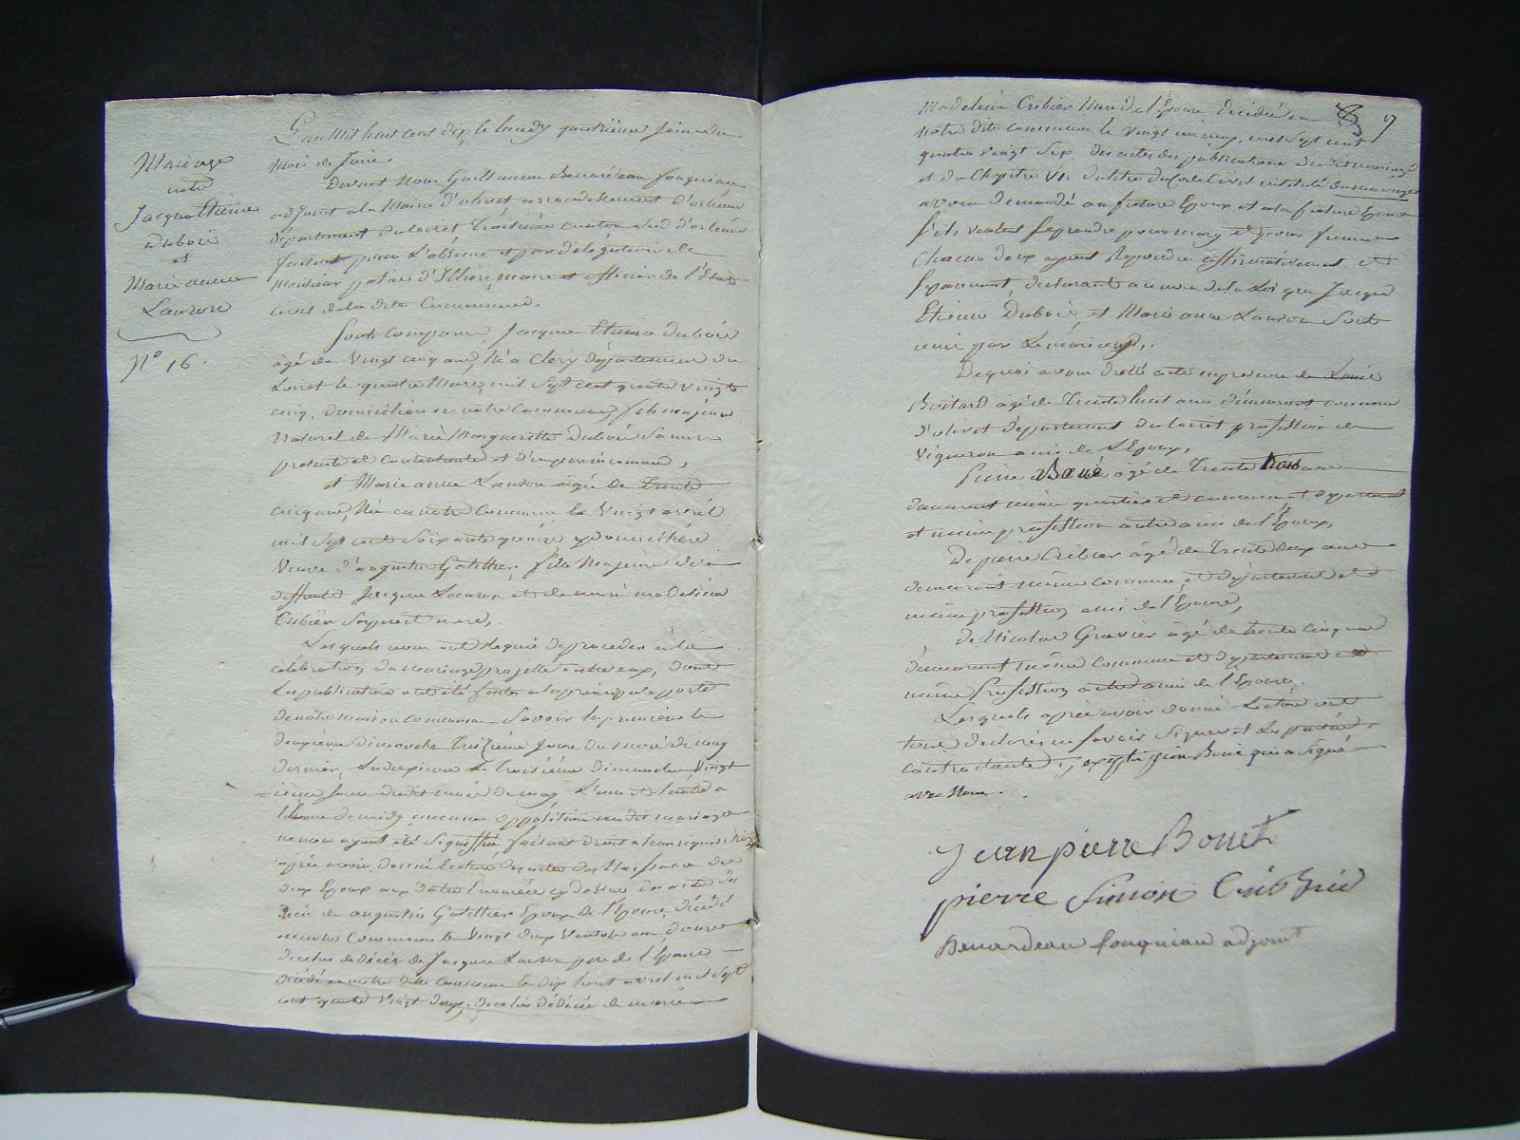 Mariage
entre
Jacque Etienne
dubois
et
Marie anne
Lauron
N° 16.
L'an Mil huit cent dix le lundy quatrième jour du
mois de Juin.
Devant Nous Guillaume Benardeau fouqueau
adjoint a la Mairie d'olivet arrondissement d'orleans
département du loiret
faisant pour l'absence et par délégation de
Monsieur maire et officier de l'Etat
civil de la dite Commune.
Sont comparu Jacque Etienne dubois
âgé de Vingt cinq ans, Né a Clery département du
Loiret le quatre Mars mil sept cent quatre vingt
cinq, domicilié en notre Commune, fils majeur
naturel de Marie Marguerite Dubois sa mere
presente et Consentante et
et Marie anne Lauron agée de Trente
cinq ans, Née en notre Commune le Vingt avril
mil sept cent soixante quinze y domiciliée
Veuve d'augustin Gatellier, fille Majeure de
deffunt Jacque Lauron et de Madeleine
Cribier ses pere et mere,
Lesquels nous ont Requis de proceder a la
célébration du mariage projetté entre eux, dont
les publications ont été faites a la principale porte
de notre maison commune Savoir la premiere le
deuxième dimanche Treizième Jour du mois de may
dernier, la deuxième le Troisième dimanche Vingt
Jour du dit mois de may L'une et l'autre a
l'heure de midy aucune opposition au dit mariage
ne nous ayant été signiffiée faisant droit a leur requis.
après avoir donné lecture des actes de Naissance des
deux Epoux aux dates énoncées cy dessus, de acte de
décès de augustin Gatellier Epoux de l'Epouse, décédé
en notre Commune le Vingt deux Ventose an douze
de celui de décès de Jacque Lauron pere de l'Epouse
décédé en notre dite Commune le dix huit avril mil sept
cent quatre vingt deux, de celui de décès de
Madeleine Cribier Mere de l'Epouse décédée en
notre dite commune le vingt mil sept cent
quatre vingt six, des actes de publications du dit mariage
et du Chapitre VI. du titre du Code Civil intitulé du mariage
avons demandé au future Epoux et a la future Epouse
s'ils veulent se prendre pour mary et pour femme
Chacun deux ayant Repondu affirmativement et
séparement, declarons au nom de la Loi que Jacque
Etienne Dubois, et Marie anne Lauron sont
unis par le mariage.
De quoi avons dressé acte en presence de Louis
Boitard âgé de Trente huit ans demeurant commune
d'olivet département du loiret profession de
Vigneron ami de l'Epoux,
Pierre Boué agé de Trente trois ans
demeurant même quartier et commune et departement
et même profession autre ami de l'Epoux,
De pierre Cribier agé de Trente deux ans
demeurant même commune et département et
même profession ami de l'Epouse,
de Nicolas Gravier âgé de trente cinq ans
demeurant même commune et departement et
même profession ami de l'Epouse.
Lesquels après avoir donné Lecture ont
tous declarés ne savoir signer et les parties
contractantes, excepté pierre Boué qui a signé
avec Nous.
Jean pierre Bouet
pierre Simon Cribier
Benardeau fouqueau adjoint